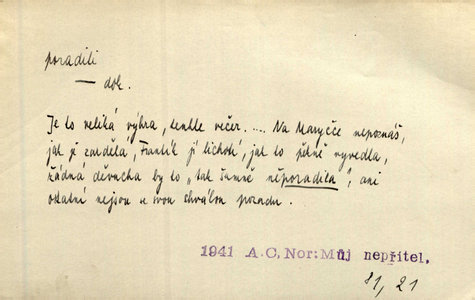 poradili
— dok.
Je to veliká výhra, tenhle večer. .... Na Maryčce nepoznáš,
jak jí zavdělá, Frantík jí lichotí, jak to pěkně vyvedla,
žádná děvucha by to „tak šumně neporadila", ani
ostatní nejsou se svou chválou pozadu.
1941 A.C.Nor: Můj nepřítel.
81, 21